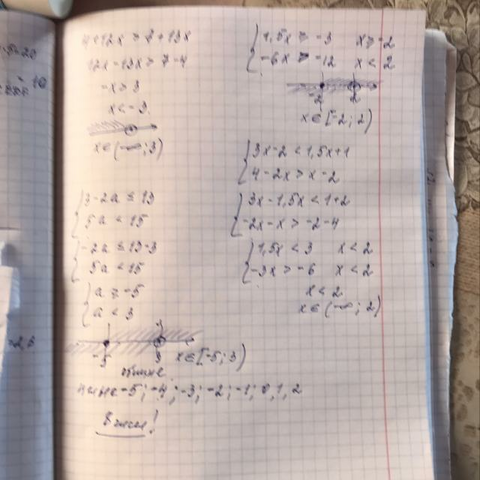 4+12x > 7+13x
12x-13x > 7-4
-x > 3
x < -3
x∈(-∞; 3)
3-2a ≤ 13
5a < 15
-2a ≤ 13-3
5a < 15
a ≥ -5
a < 3
-5 3
x∈[-5; 3)
-5; -4; -3; -2; -1; 0, 1, 2
1,5x ≥ -3 x ≥ -2
-6x > -12 x < 2
-2 2
x∈[-2; 2)
3x-2 < 1,5x+1
4-2x > x-2
3x-1,5x < 1+2
-2x-x > -2-4
1,5x < 3 x < 2
-3x > -6 x < 2
x < 2
x∈(-∞; 2)